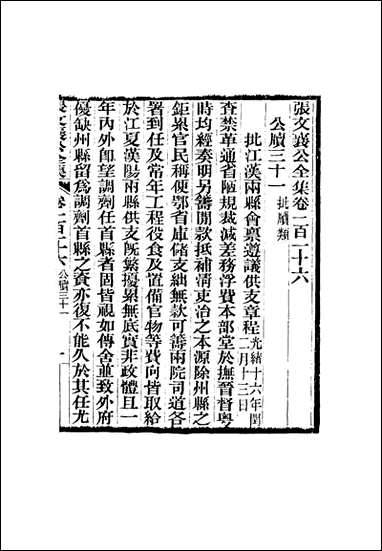 張文襄公全集卷一百一十六
公牘三十一 批牘類
批江漢兩縣會稟遵議供支章程 光緒十六年閏二月十三日
查禁革通省陋規裁減差務浮費本部堂於撫晉督粤
時均經奏明另籌開款抵補清吏治之本源除州縣之
鉅累官民稱便鄂省庫儲支絀無款可籌兩院司道各
署到任及常年工程役食及置備官物等費向皆取給
於江夏漢陽兩縣供支既繁擾累無底實非政體且一
年內外卽望調劑任首縣者固皆視如傳舍並致外府
優缺州縣留爲調劑首縣之資亦復不能久於其任尤
卷一百一十六 公牘三十一 一